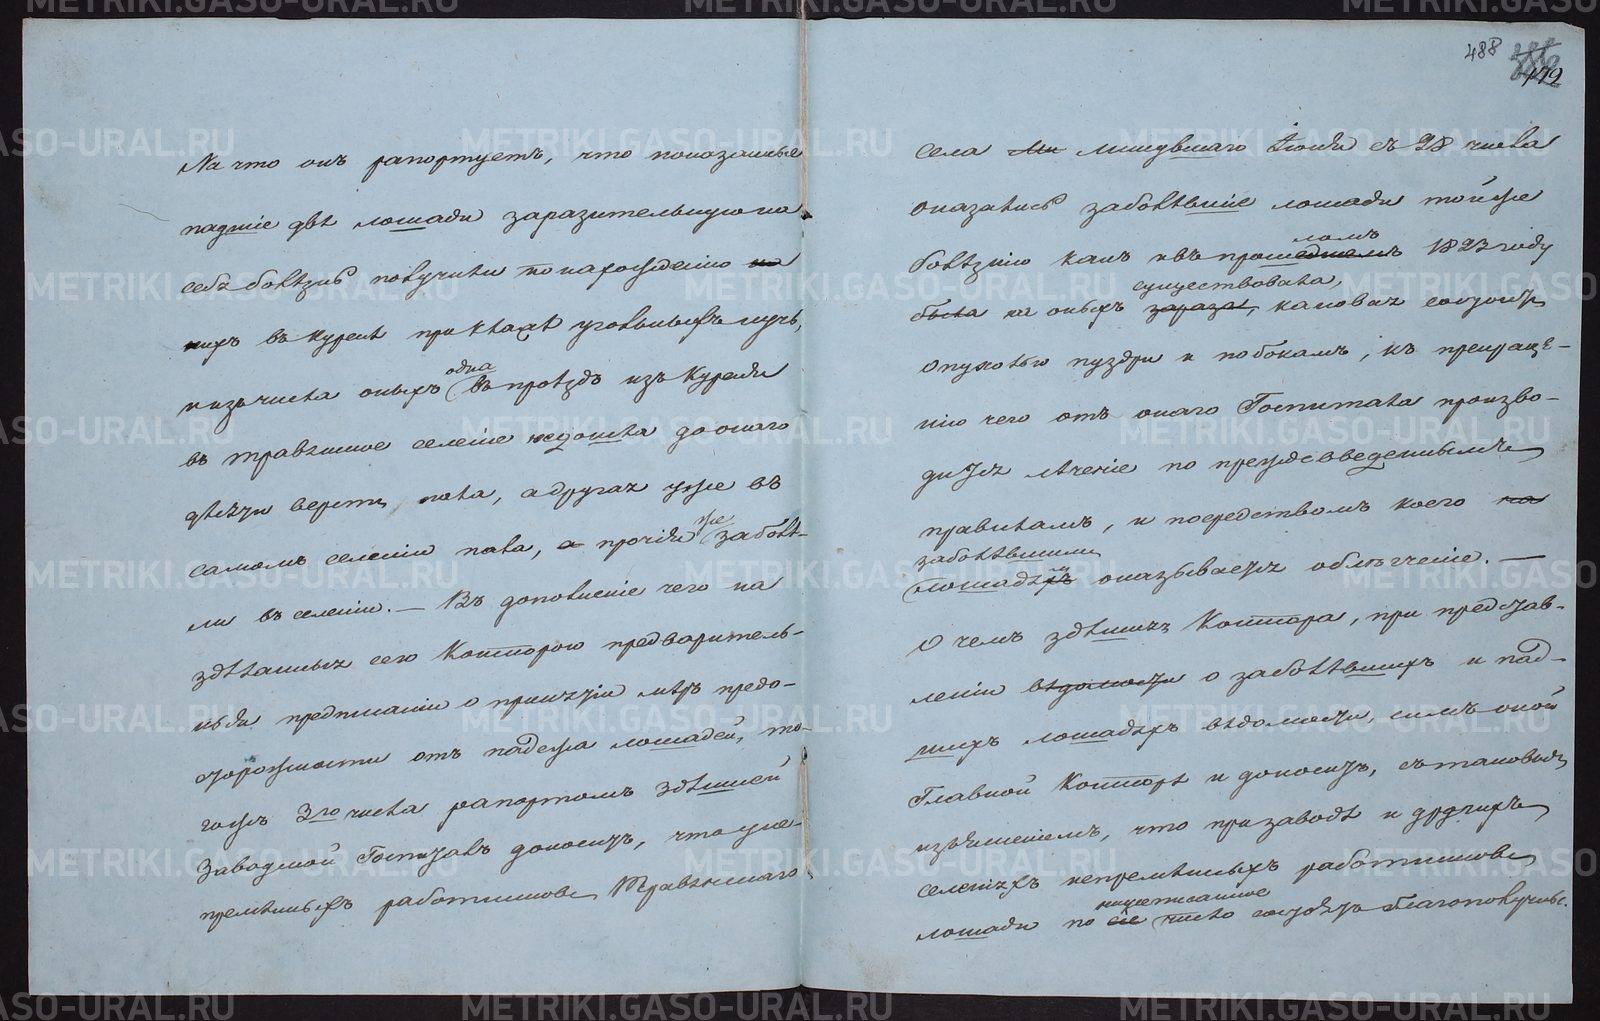 На что онъ рапортуетъ, что показанные
падшiе двѣ лошади заразительную на
себѣ болѣзнь получили по нахожденiю на
нихъ въ куренѣ при кладкѣ угольныхъ кучь,
и изъ числа оныхъ одна въ проѣздъ изъ куреня
въ травянское селенiе недошла до онаго
версты пала, а другая уже въ
самомъ селенiи пала, а прочiя же заболѣ-
ли въ селенiи. — Въ дополненiе чего на
здѣланныя сею Конторою предваритель-
ныя предписанiи о принятiи мѣръ предо-
сторожности отъ падежа лошадей, то-
гожъ 3го числа рапортомъ здѣшней
Заводской Госпиталь доноситъ, что у не-
премѣнныхъ работниковъ Травянскаго
488
479
села ми минувшаго Iюля съ 28 числа
оказались заболѣвшiе лошади тойже
болѣзнiю какъ и въ прошедшемъ ломъ 1823 году
была на оныхъ зараза, существовала, каковая состоитъ
опухолью пуздри и по бокамъ, къ прекраще-
нiю чего отъ онаго Госпиталя произво-
дится лѣченiе по преждевведеннымъ
правиламъ, и посредствомъ коего на
заболѣвшими лошадяхъ оказывается облегченiе. —
О чемъ здѣшняя Контора, при представ-
ленiи вѣдомости о заболѣвшихъ и пад-
шихъ лошадяхъ вѣдомости, симъ оной
Главной Конторѣ и доноситъ, съ таковымъ
изъясненiемъ, что при заводѣ и другихъ
селенiяхъ непремѣнныхъ работниковъ
лошади по сiе нижеписанное число состоятъ благополучны.
METRIKI.GASO-URAL.RU